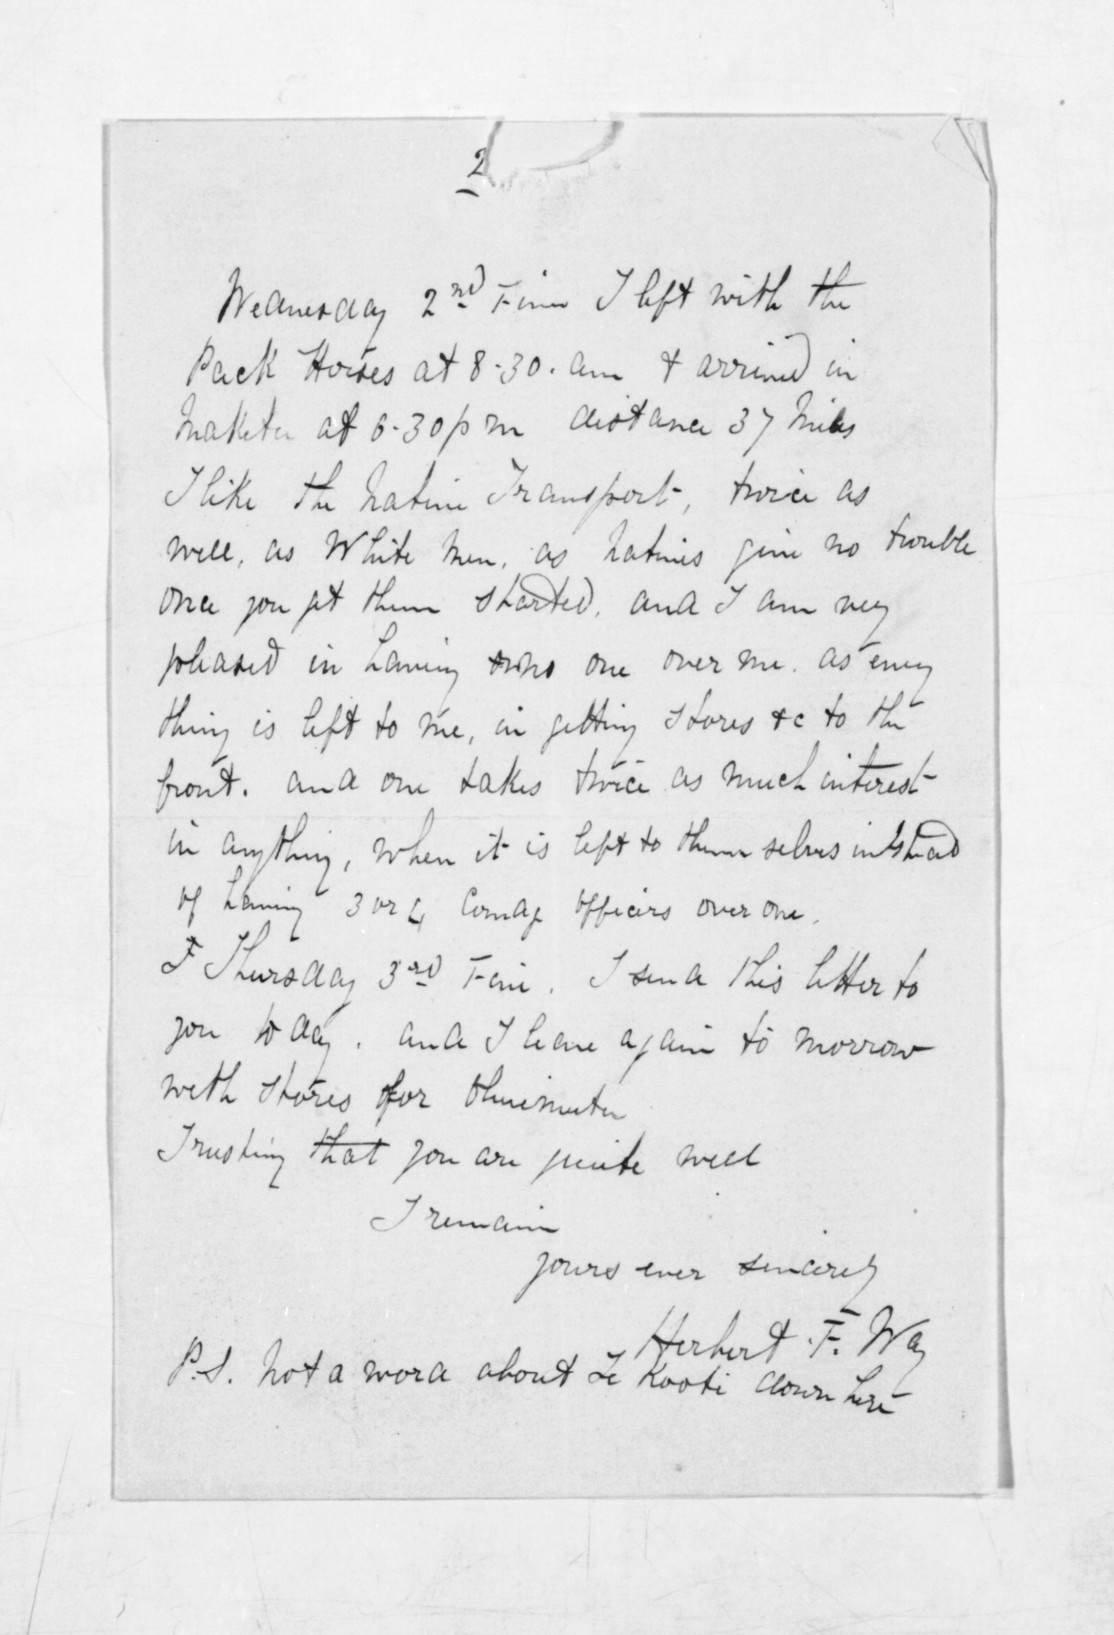 2
Wednesday 2nd I left with the
Pack Horses at 8.30. am & arrived in
Maketu at 6.30 pm distance 37 Miles
I like the Native Transport, twice as
well, as White Men, as Natives give no trouble
once you get them started. and I am very
pleased in having no one over me. as every
thing is left to me, in getting stores &c to the
front. and one takes twice as much interest
in anything, when it is left to them selves instead
of having 3 or 4 officers over one.
Thursday 3rd I send this letter to
you to day. and I leave again to morrow
with stores for
Trusting that you are quite well
I remain
yours ever sincerely
Herbert F. Way
P.S. Not a word about Te Kooti down here